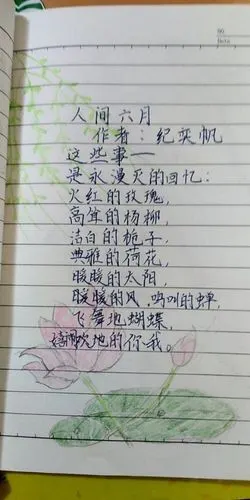 人间六月
作者：纪奕帆
这些事一
是永漫灭的回忆：
火红的玫瑰，
高耸的杨柳，
洁白的栀子，
典雅的荷花，
暖暖的太阳，
暖暖的风，鸣叫的蝉
飞舞地蝴蝶，
嬉闹欢地的你我。